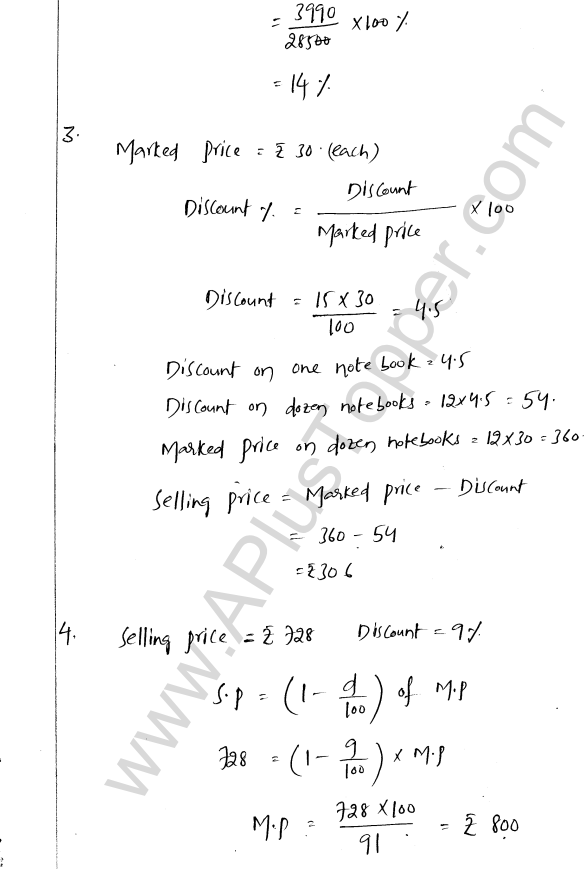 = 3990/28500 ×100 %
= 14 %
3.
Marked price = ₹ 30 (each)
Discount % = Discount/Marked price × 100
Discount = 15 × 30/100 = 4.5
Discount on one note book = 4.5
Discount on dozen notebooks = 12×4.5 = 54.
Marked price on dozen notebooks = 12×30 = 360.
Selling price = Marked price - Discount
= 360 - 54
= ₹306
4. Selling price = ₹ 728 Discount = 9%
S.P = (1 - d/100) of M.P
728 = (1 - 9/100) × M.P
M.P = 728 × 100/91 = ₹ 800
www.APlusTopper.com